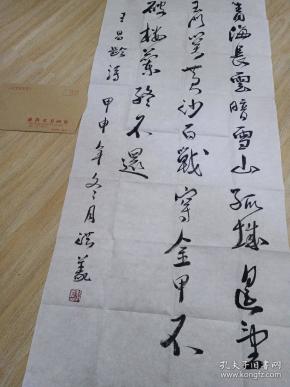 青海長雲暗雪山孤城遥望
玉門関黄沙百戰穿金甲不
破樓蘭終不還
王昌齡詩 甲申年冬月
孔夫子旧书网